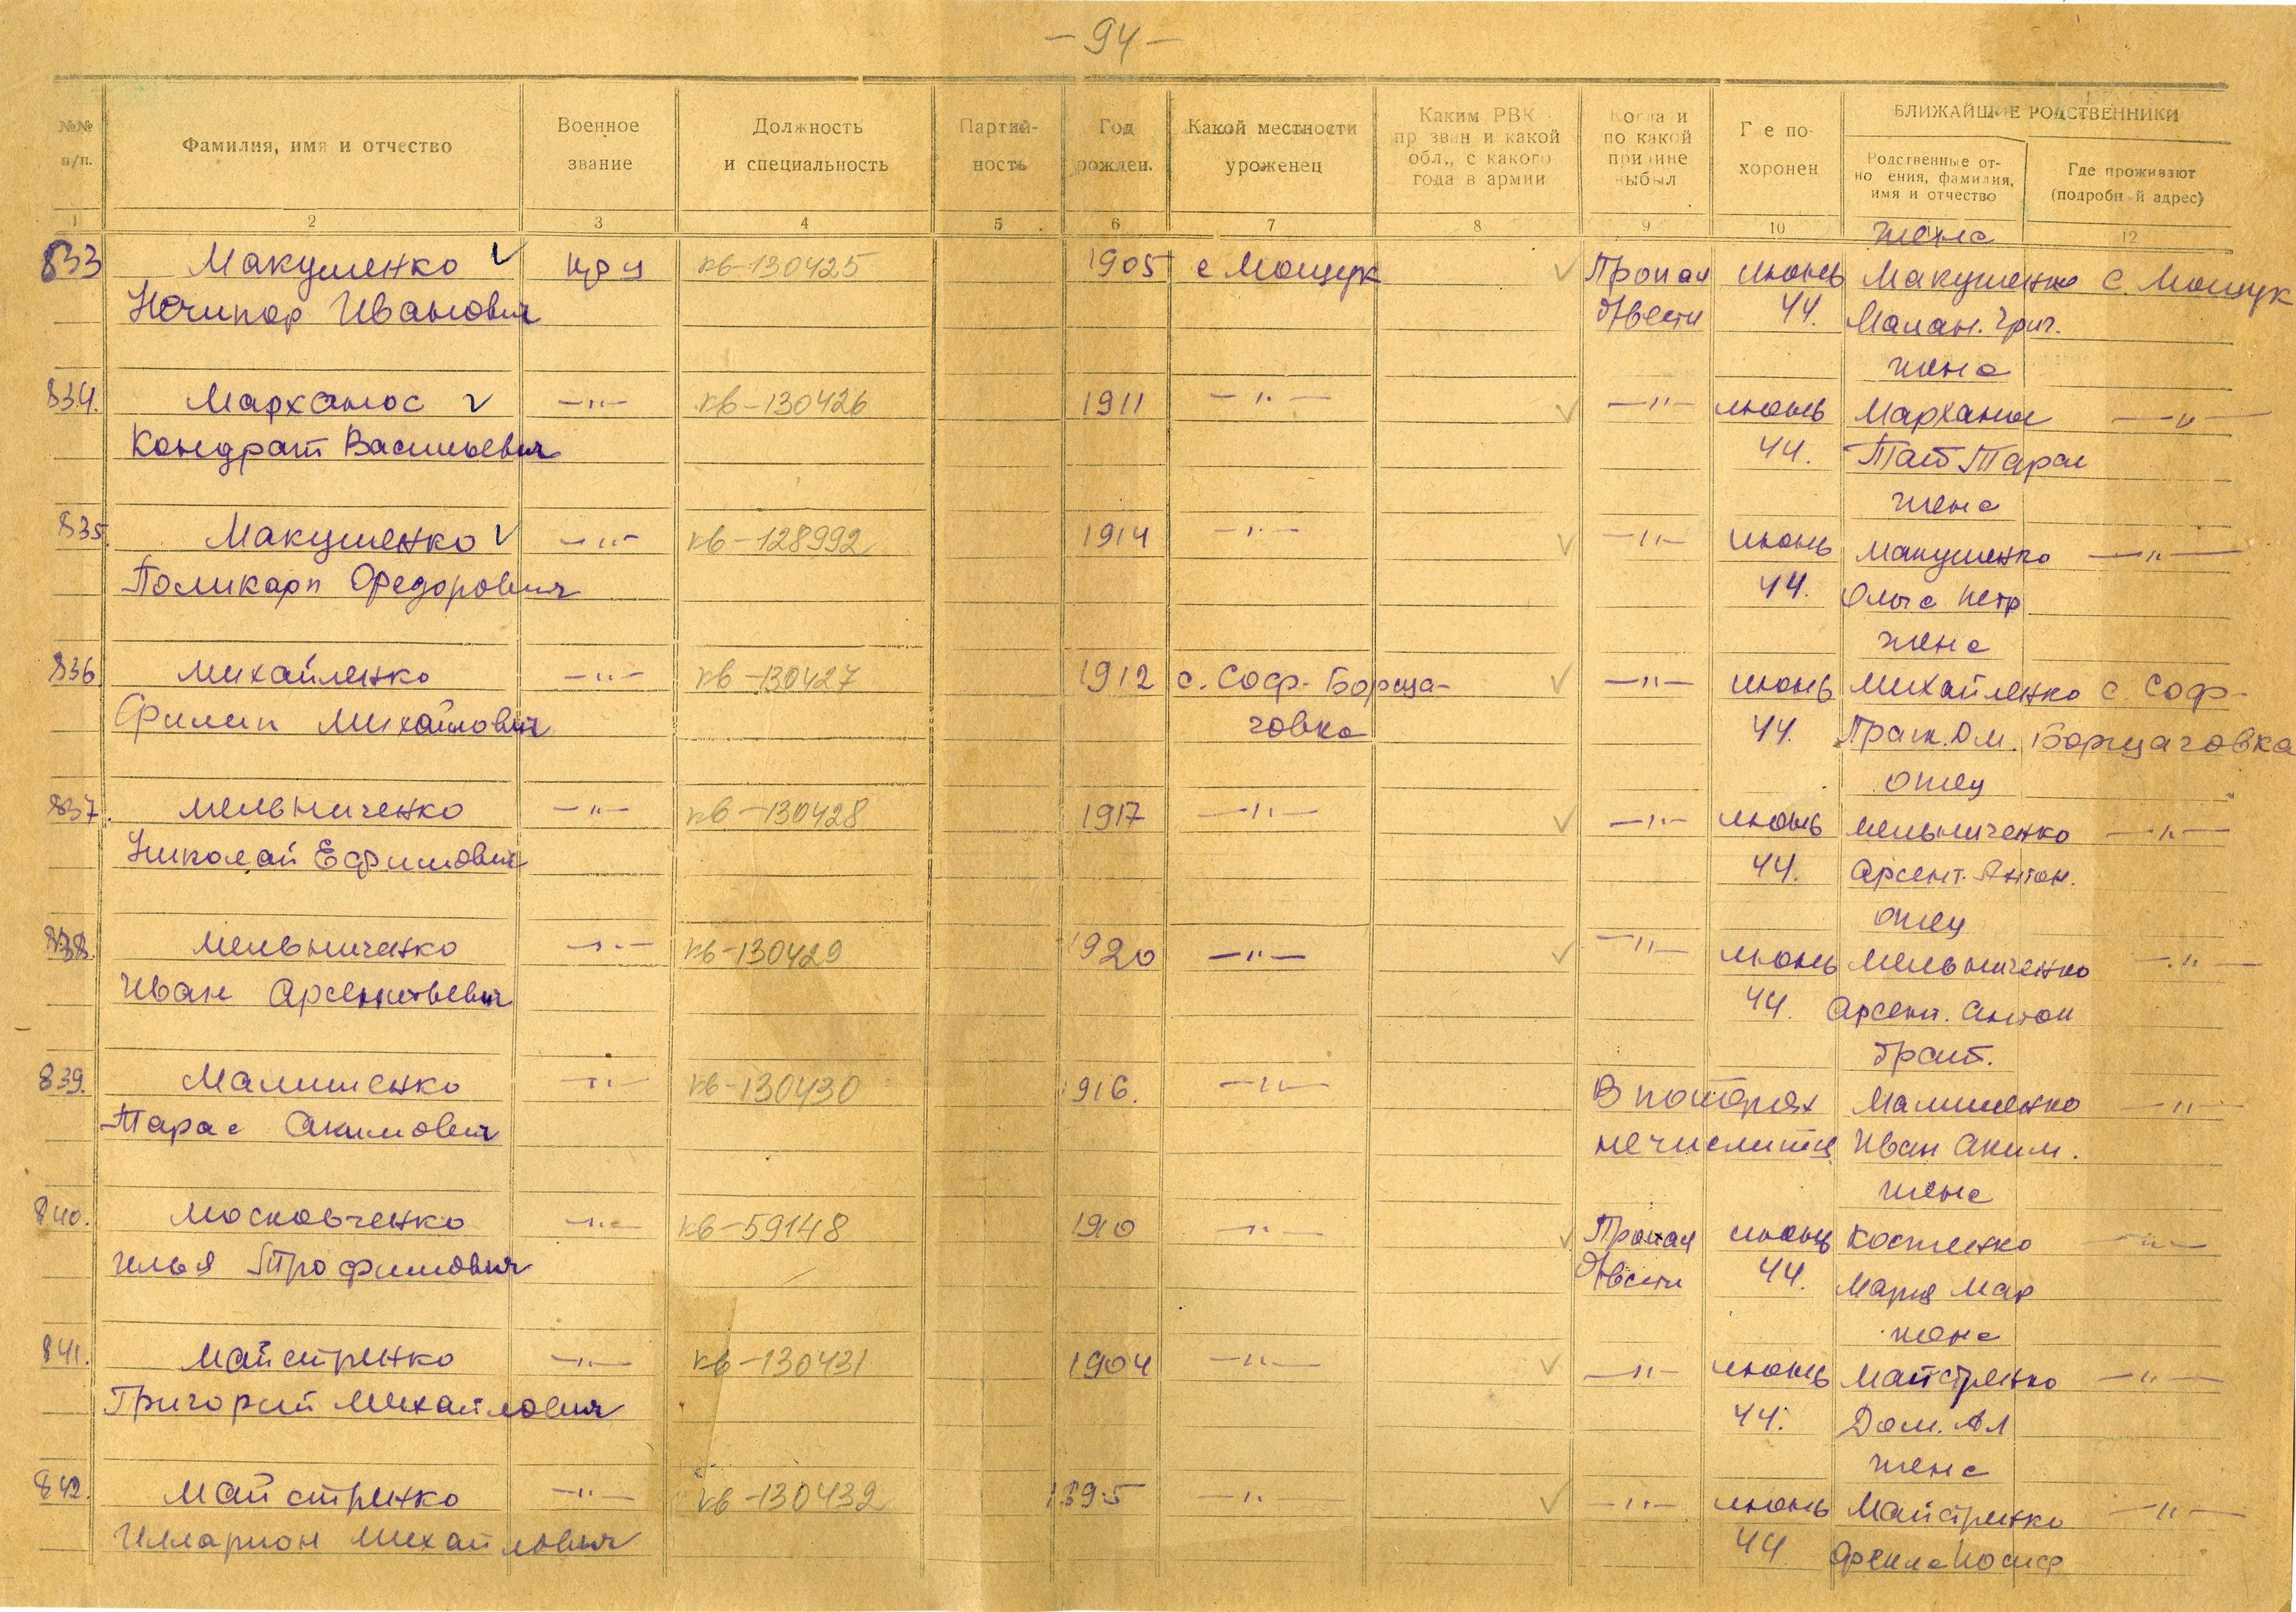 — 94 —
№№ п/п.
Фамилия, имя и отчество
Военное звание
Должность и специальность
Партий- ность
Год рожден.
Какой местности уроженец
Каким РВК пр зван и какой обл., с какого года в армии
Когда и по какой причине выбыл
Г е по- хоронен
БЛИЖАЙШИЕ РОДСТВЕННИКИ
Родственные от- но ения, фамилия, имя и отчество
Где проживают (подробн й адрес)
1 2 3 4 5 6 7 8 9 10 12
жена
833 Макушенко V кр-ц кв-130425 1905 с Мощук V Пропал июнь Макушенко с. Мощук
Нечипор Иванович б/вести 44. Малан. Григ.
жена
834. Марханос V —"— кв-130426 1911 —"— V —"— июнь Марханос —"—
Кондрат Васильевич 44. Тат Тарас
жена
835. Макушенко V —"— кв-128992 1914 —"— V —"— июнь Макушенко —"—
Поликарп Федорович 44. Ольга Петр
жена
836 Михайленко —"— кв-130427 1912 с. Соф-Борща- V —"— июнь Михайленко с. Соф-
Филип Михайлович говка 44. Ом. Борщаговка
отец
837. Мельниченко —"— кв-130428 1917 —"— V —"— июнь Мельниченко —"—
Николай Ефимович 44. Арсент. Антон.
отец
838. Мельниченко —"— кв-130429 1920 —"— V —"— июнь Мельниченко —"—
Иван Арсентьевич 44. Арсент. Антон
брат.
839. Малишенко —"— кв-130430 1916. —"— В потерях Малишенко —"—
Тарас Акимович не числится Иван Аким.
жена
840. Московченко —"— кв-59148 1910 —"— V Пропал июнь Костенко —"—
Илья Трофимович б/вести 44. Мария Мар
жена
841. Майстренко —"— кв-130431 1904 —"— V —"— июнь Майстренко —"—
Григорий Михайлович 44. Дом. Ал
жена
842. Майстренко —"— кв-130432 1895 —"— V —"— июнь Майстренко —"—
Илларион Михайлович 44 Иосиф